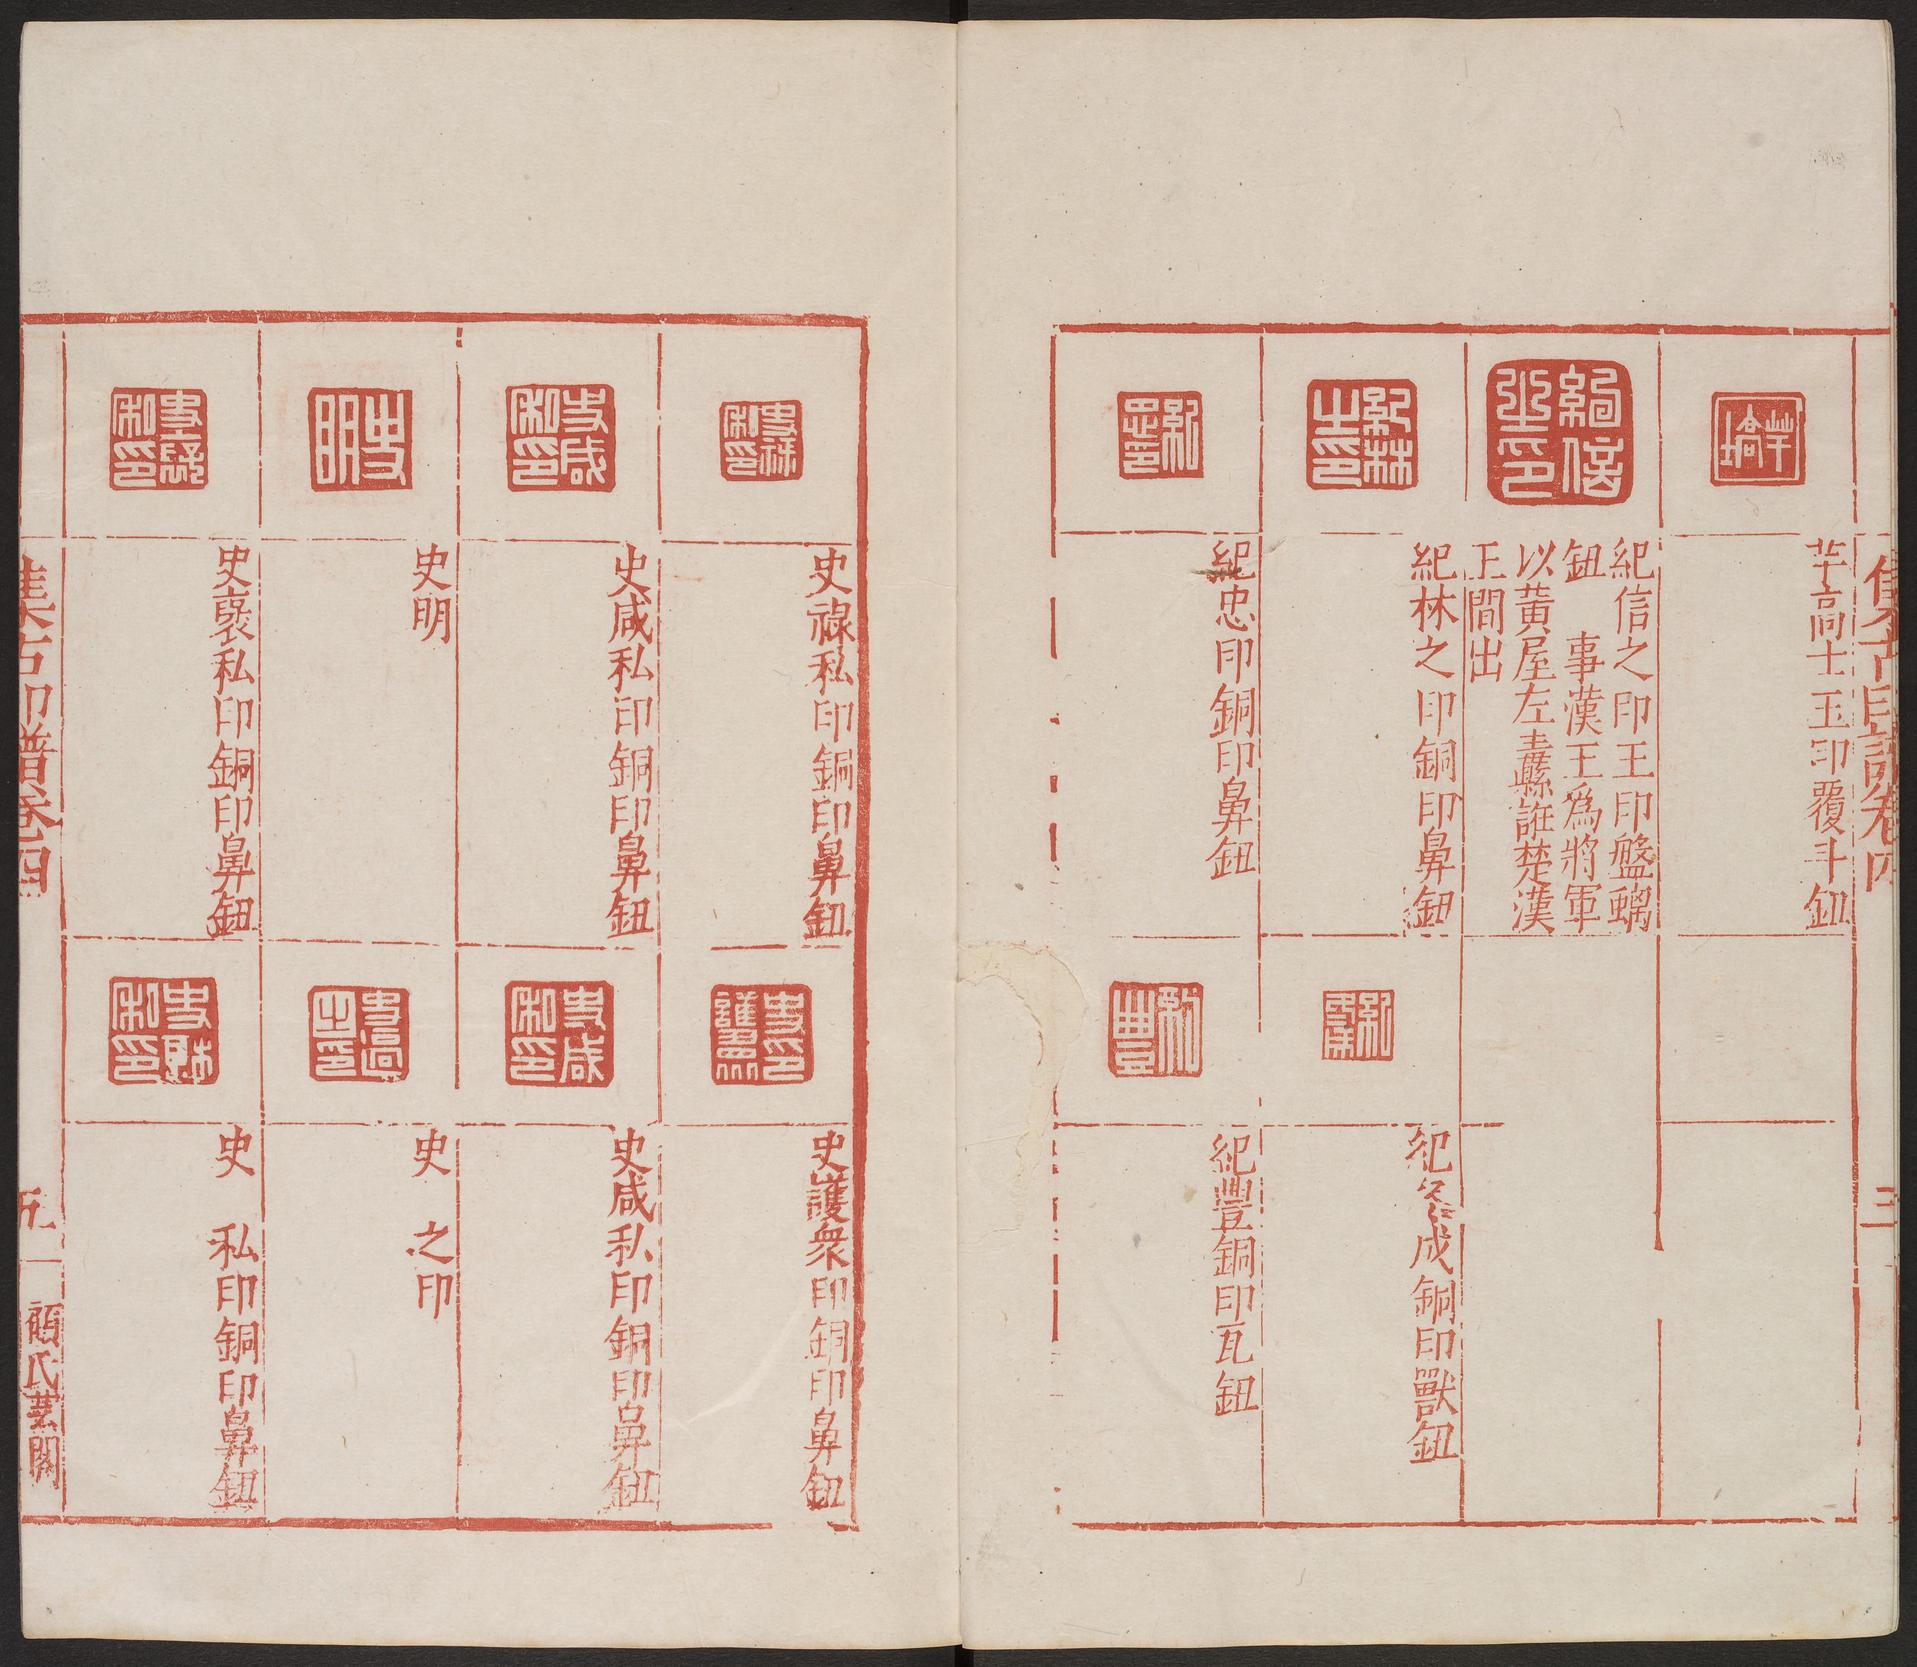 集古印譜卷四
三
芉高士玉印覆斗鈕
紀信之印王印盤螭
鈕　事漢王爲將軍
以黃屋左纛誑楚漢
王間出
紀林之印銅印鼻鈕
紀忠印銅印鼻鈕
紀冬成銅印獸鈕
紀豐銅印瓦鈕
史祿私印銅印鼻鈕
史咸私印銅印鼻鈕
史明
史褒私印銅印鼻鈕
史護衆印銅印鼻鈕
史咸私印銅印鼻鈕
史　之印
史　私印銅印鼻鈕
集古印譜卷四
五
顧氏芸閣